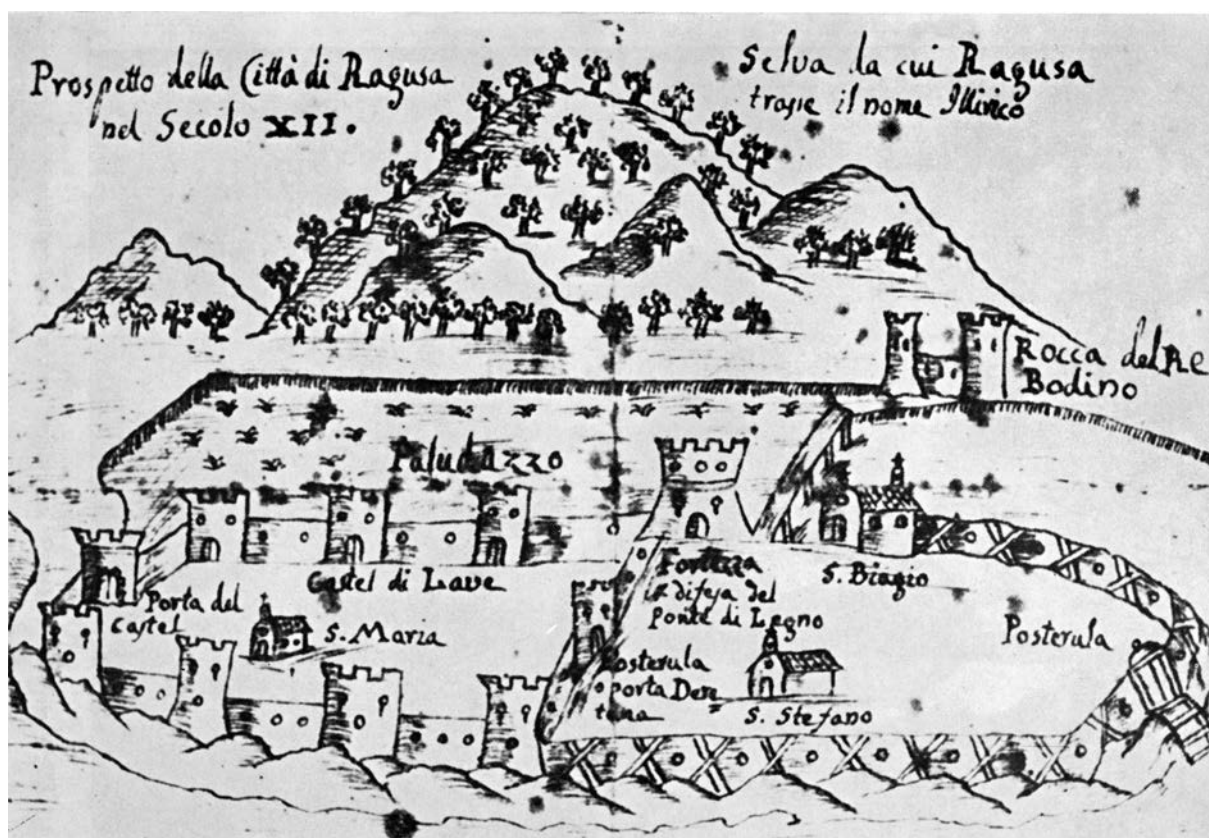 Prospetto della Città di Ragusa
nel Secolo XII.
Selva la cui Ragusa
trasse il nome Illirico
Rocca del Re
Bodino
Paludazzo
Castel di Lave
Porta del
Castel
S. Maria
Fortezza
a difesa del
ponte di Legno
S. Biagio
Posterula
Posterula
porta
S. Stefano